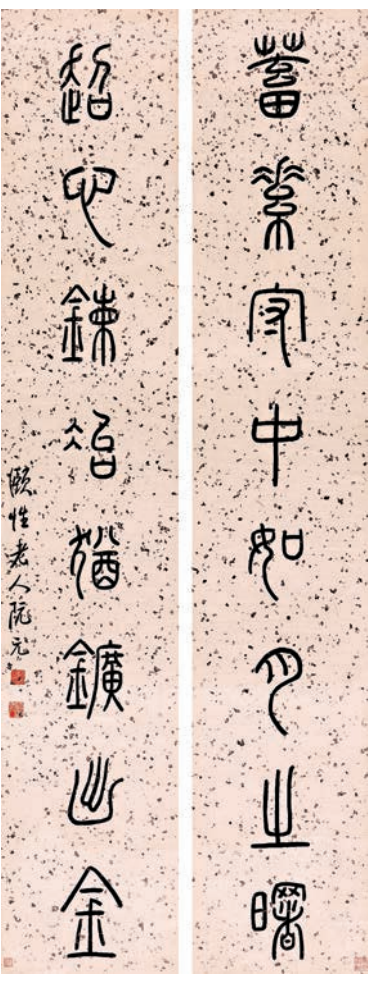 蓄素守中如月之曙
超心鍊冶猶鑛出金
頤性老人阮元